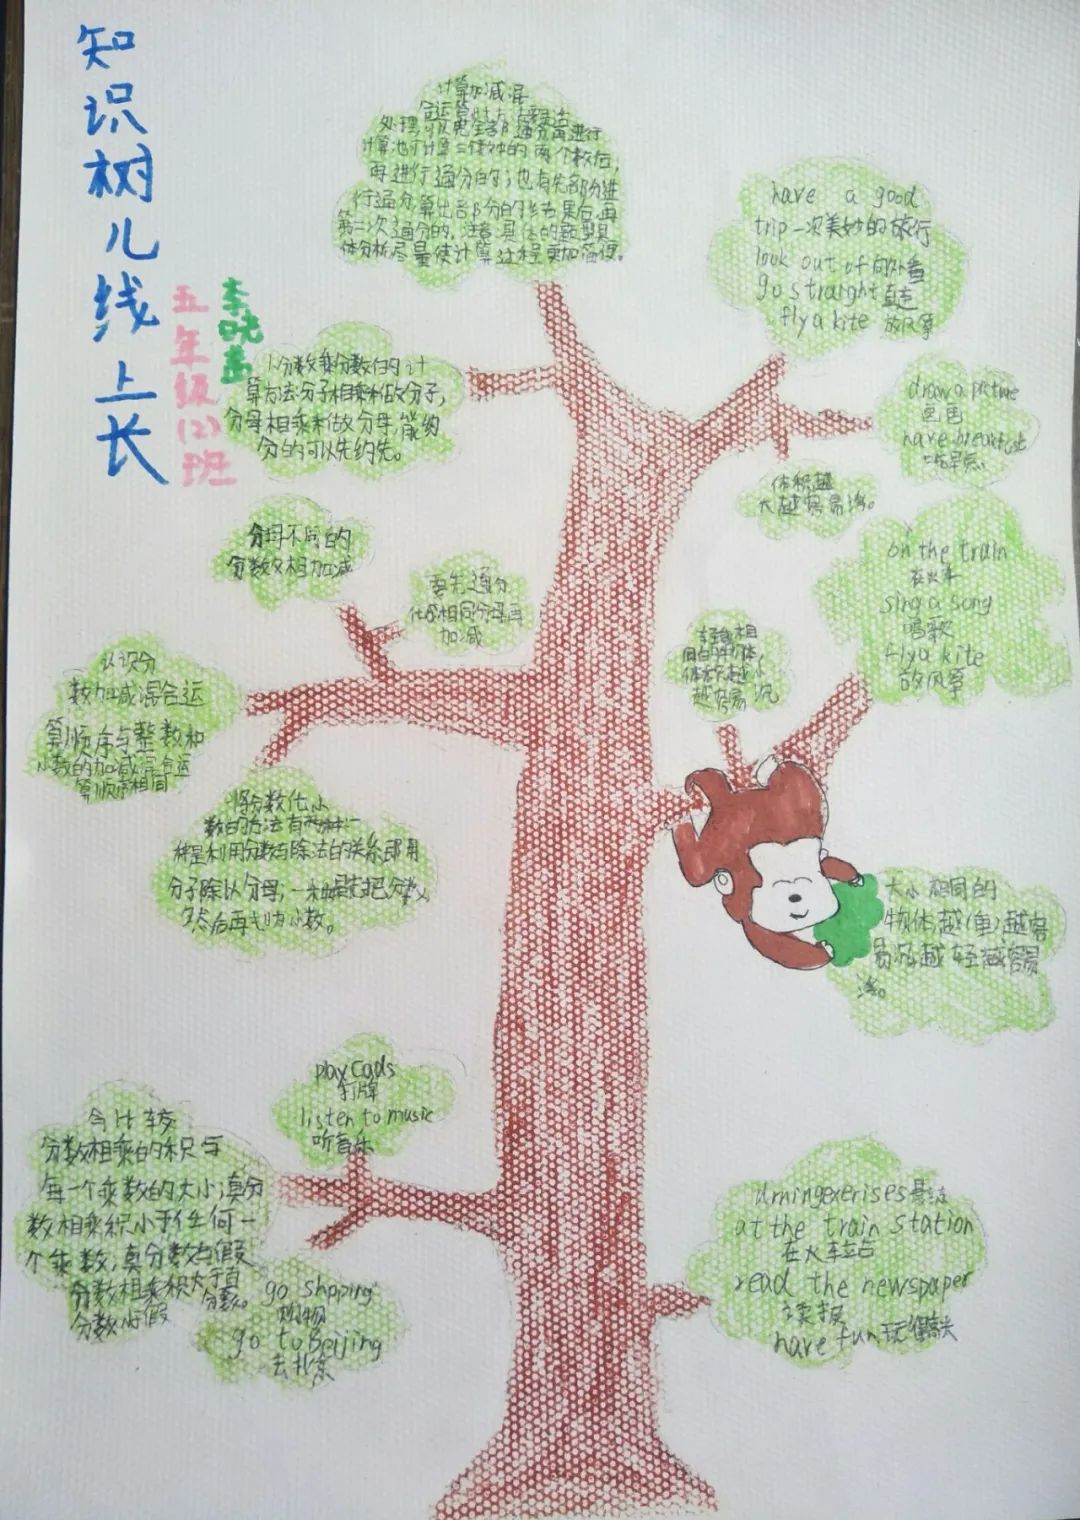 知识树儿线上长
五年级(2)班
李
计算加减混
合运算时
处理可以先全部通分再进行
计算也可计算三个数中的两个数后,
再进行通分的;也有先部分进
行通分算出部分的结果后再
第二次通分的。注意具体的题型具
体分析尽量使计算过程更加简便。
have a good
trip 一次美妙的旅行
look out of 向外看
go straight 直走
fly a kite 放风筝
1分数乘分数的计
算方法分子相乘积做分子,
分母相乘积做分母,能约
分的可以先约先。
draw a picture
画画
have breakfast
吃早点
体积越
大越容易浮。
分母不同的
分数相加减
要先通分
化成相同分母再
加减
on the train
在火车
sing a song
唱歌
fly a kite
放风筝
轻重相
同的物体,
体积越小
越容易沉
认识分
数加减混合运
算顺序与整数和
小数的加减混合运
算顺序相同
将分数化小
数的方法有两种一
种是利用分数与除法的关系即用
分子除以分母;一种是先把分数
然后再 小数。
大小相同的
物体越(重)越容
易沉越轻越容易
浮。
play cads
打牌
listen to music
听音乐
今比较
分数相乘的积与
每一个乘数的大小:真分
数相乘积小于任何一
个乘数;真分数与假
分数相乘积大于真
分数。
分数小于假
go shpping
购物
go to Beijing
去北京
drningexerises 晨练
at the train station
在火车站
read the newspaper
读报
have fun 玩得高兴